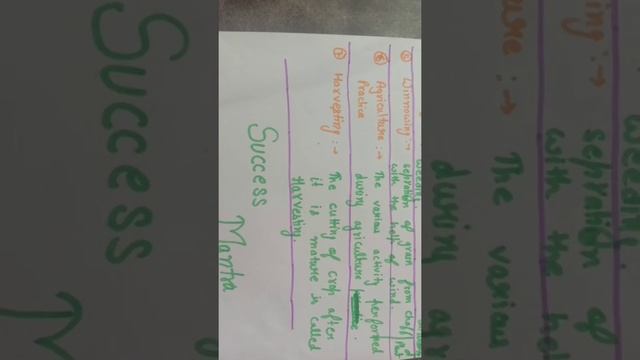 weeding
⑤ Winnowing :→ sepration of grain from chaff
with the half of wind.
⑥ Agriculture :→ The various activity performed
Practice during agriculture
⑦ Harvesting :→ The cutting of crop after
it is mature is called
Harvesting.
Success
Mantra